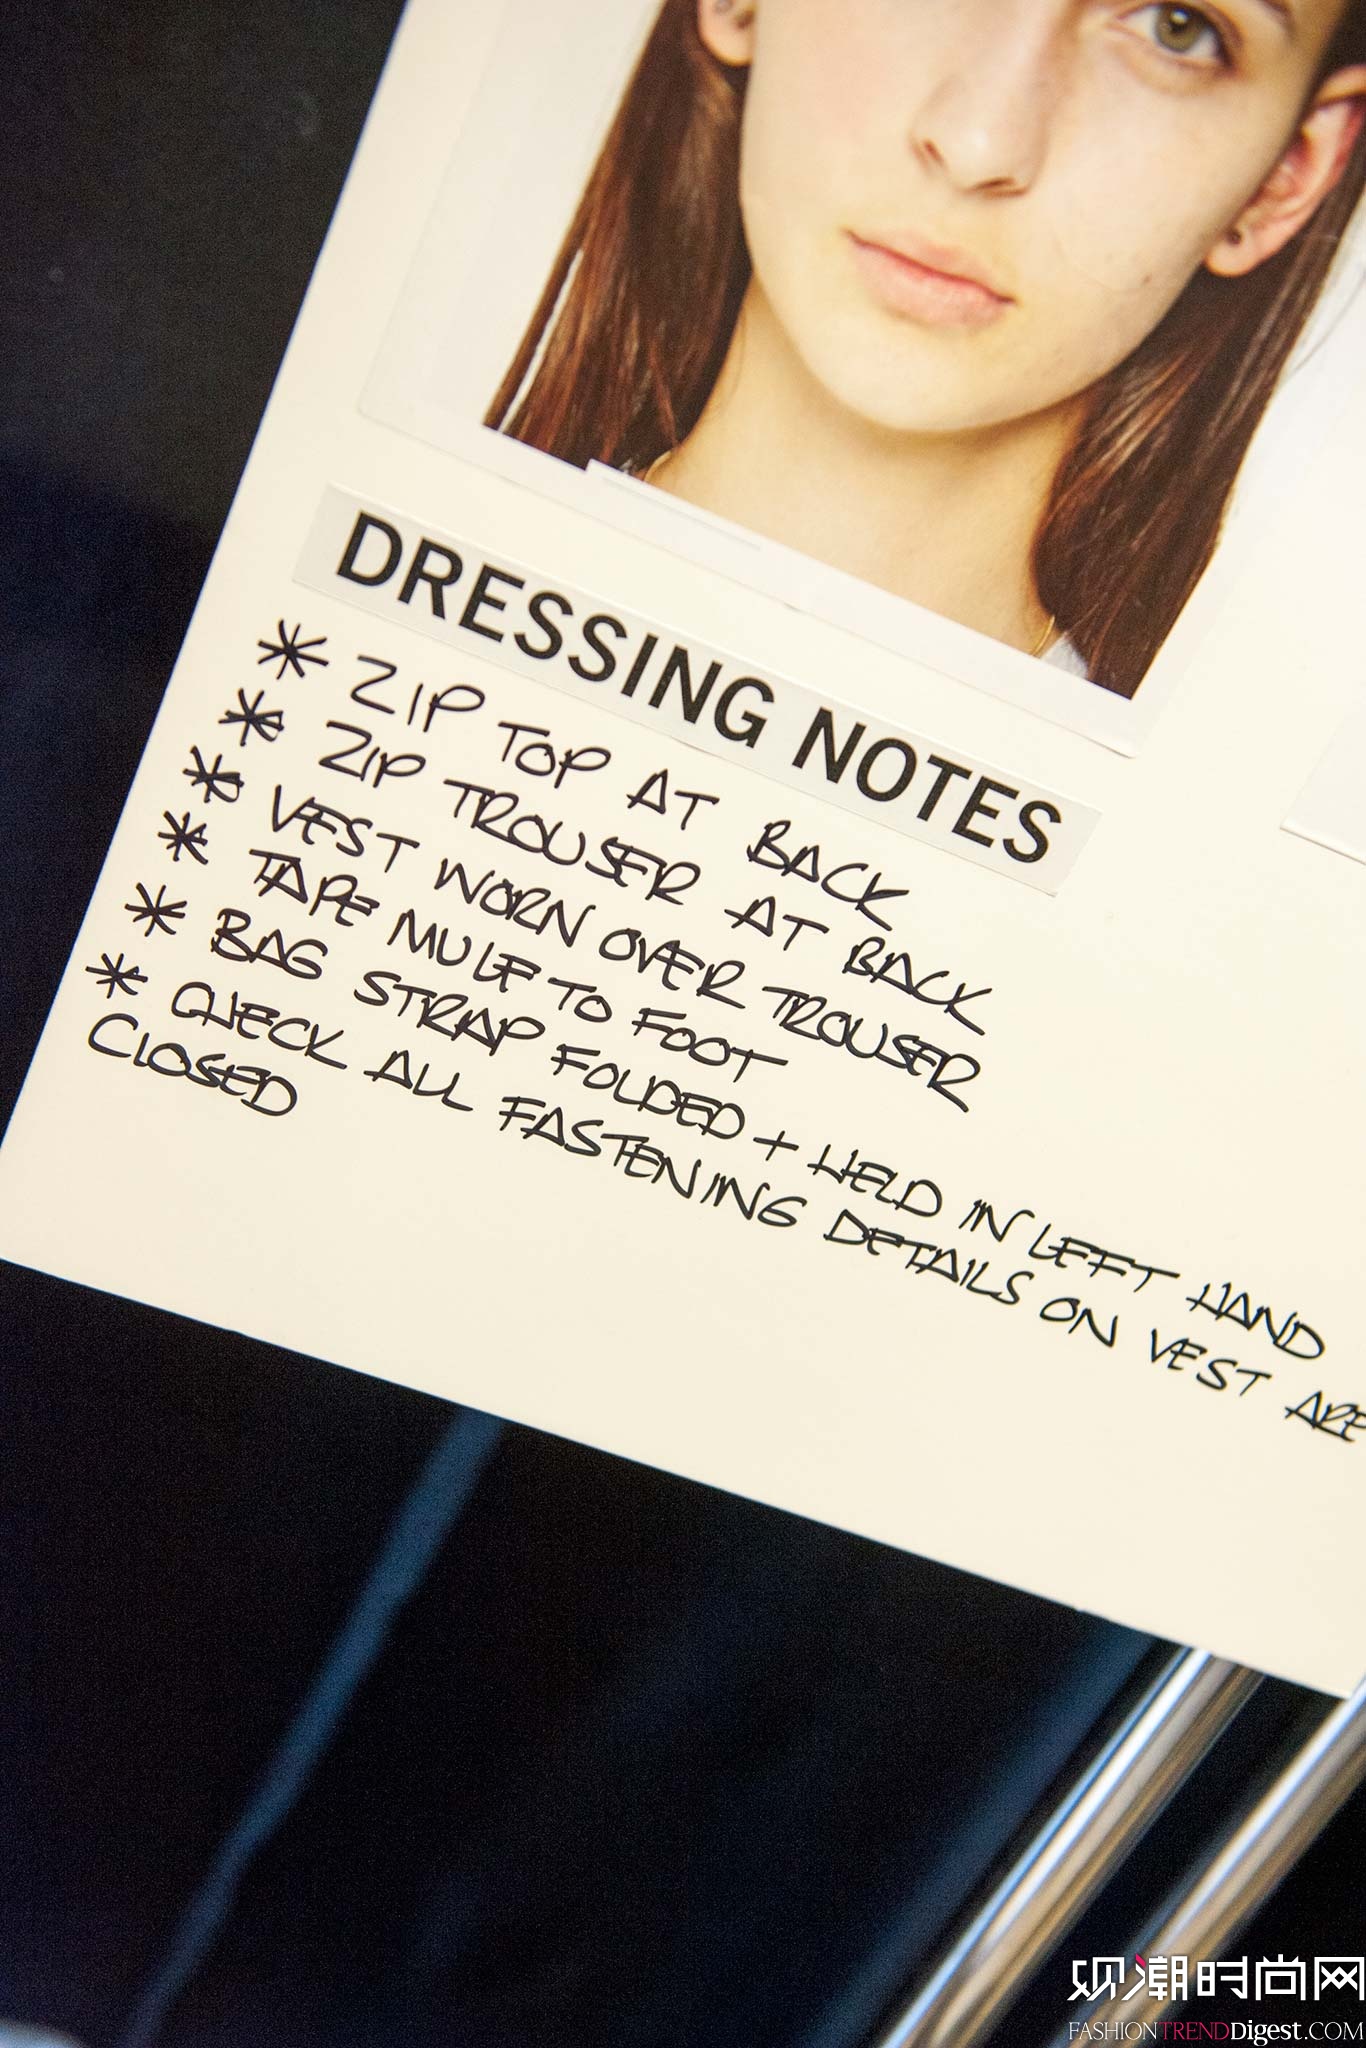 DRESSING NOTES
* ZIP TOP AT BACK
* ZIP TROUSER AT BACK
* VEST WORN OVER TROUSER
* TAPE MULE TO FOOT
* BAG STRAP FOLDED + HELD IN LEFT HAND
* CHECK ALL FASTENING DETAILS ON VEST ARE
CLOSED
观潮时尚网
FASHIONTRENDDIgest.COM